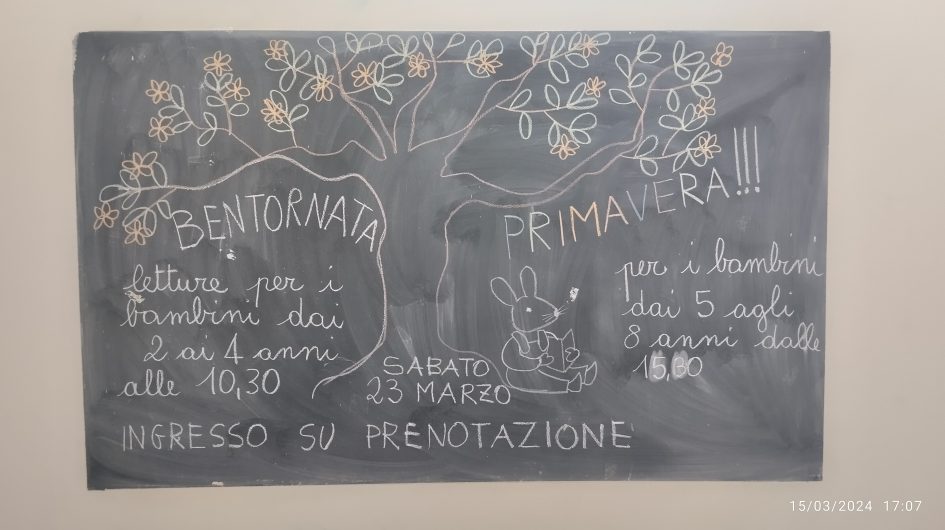 BENTORNATA
PRIMAVERA!!!
letture per i
bambini dai
2 ai 4 anni
alle 10,30
SABATO
23 MARZO
per i bambini
dai 5 agli
8 anni dalle
15,30
INGRESSO SU PRENOTAZIONE
15/03/2024 17:07